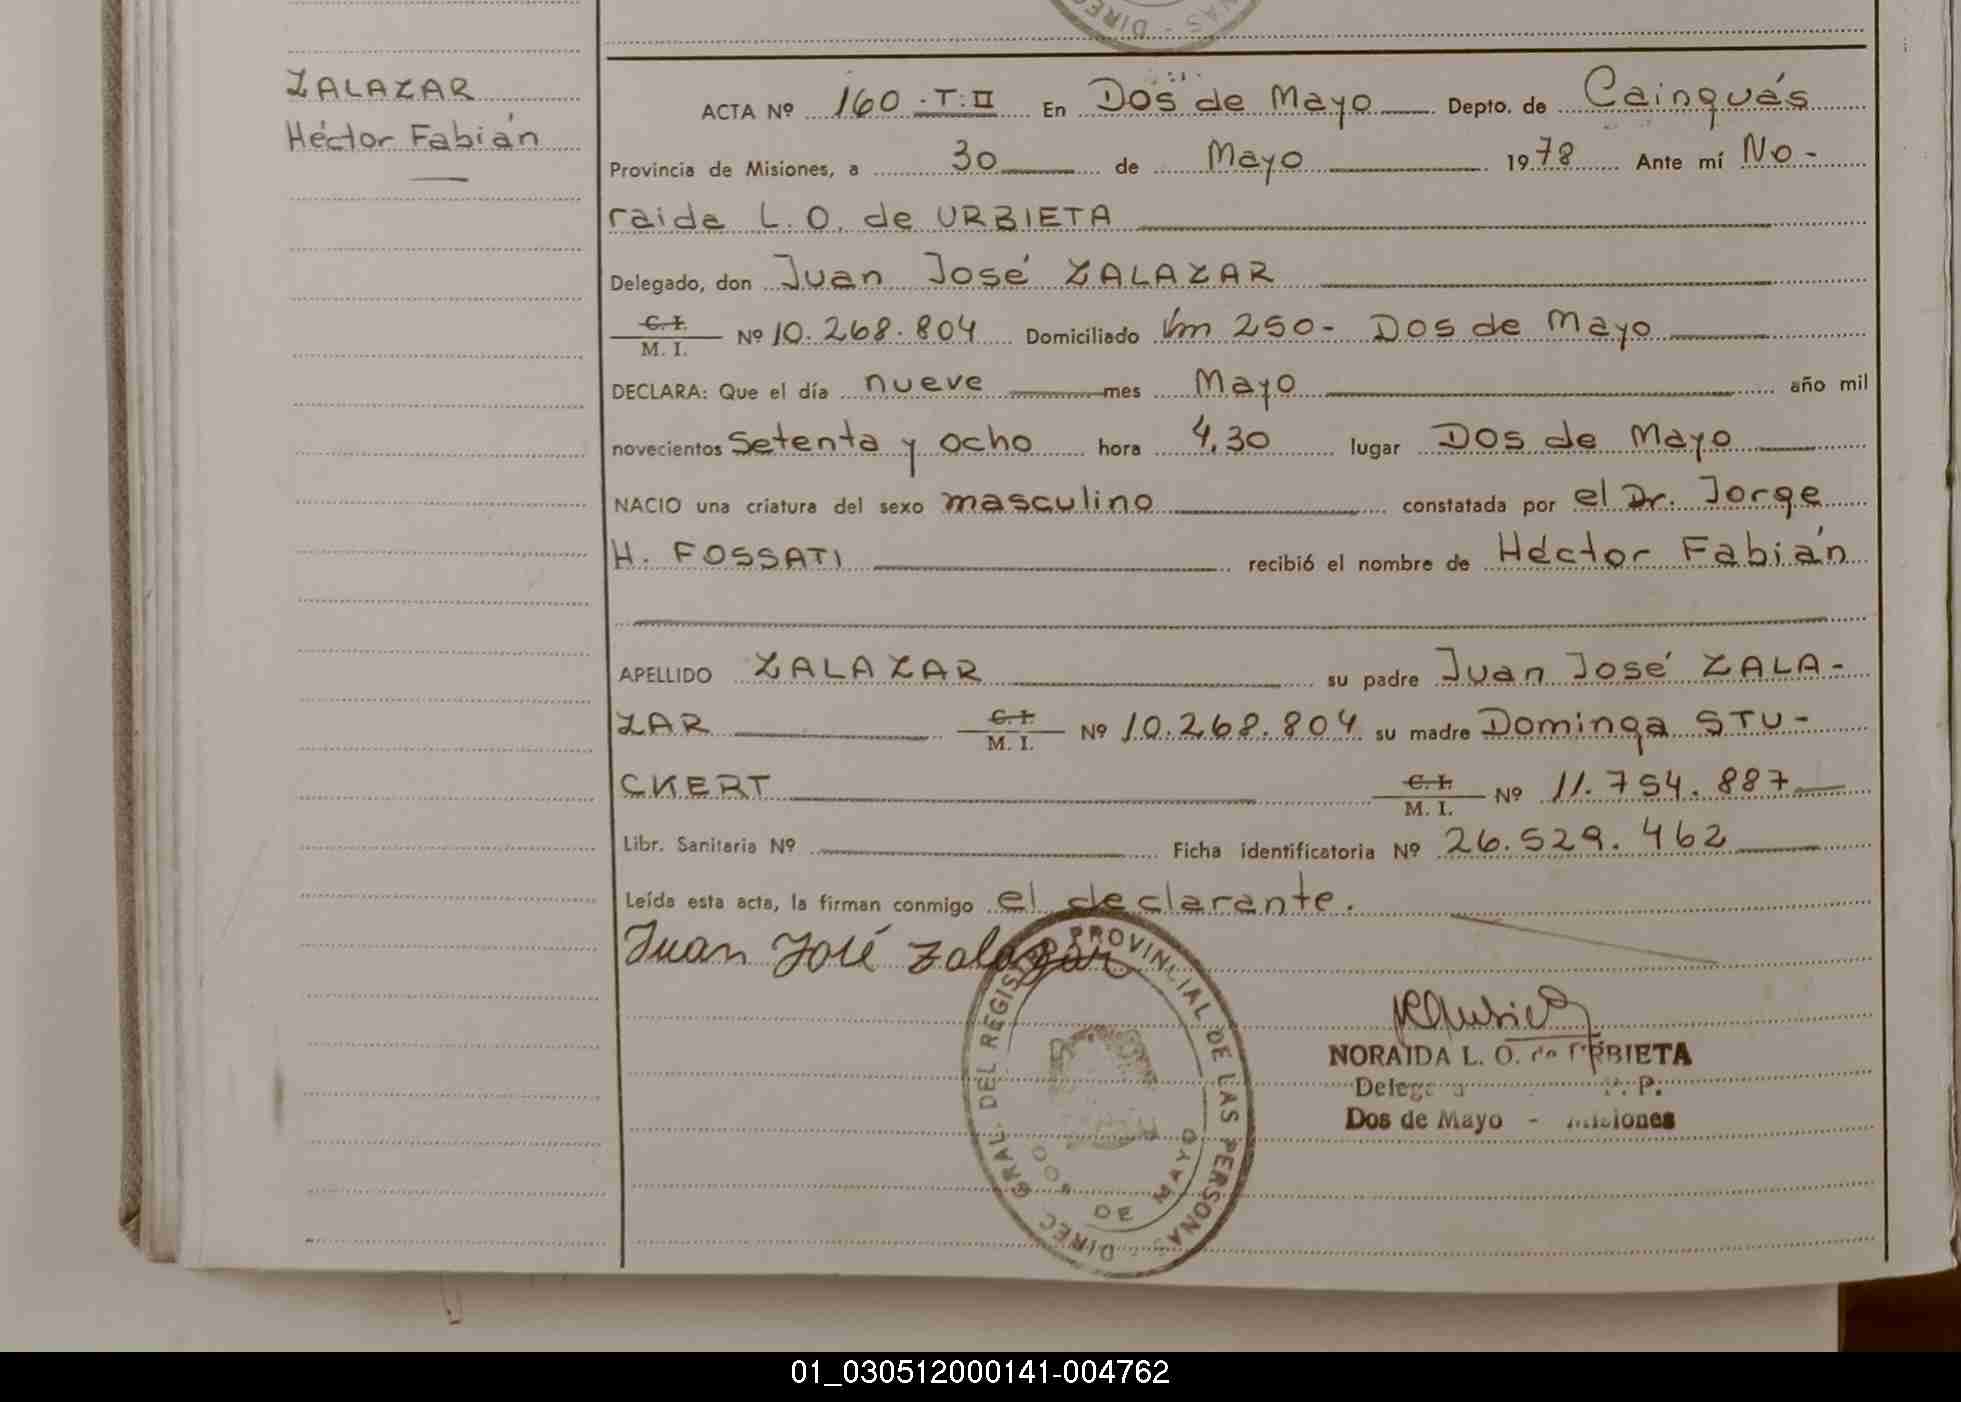 NAS - DIREC
ZALAZAR
Héctor Fabián
ACTA Nº 160 - T: II En Dos de Mayo Depto. de Cainguás
Provincia de Misiones, a 30 de Mayo 1978 Ante mí No-
raida L. O. de URBIETA
Delegado, don Juan José ZALAZAR
C. I. / M. I. Nº 10.268.804 Domiciliado Km 250 - Dos de Mayo
DECLARA: Que el día nueve mes Mayo año mil
novecientos Setenta y ocho hora 4,30 lugar Dos de Mayo
NACIO una criatura del sexo masculino constatada por el Dr. Jorge
H. FOSSATI recibió el nombre de Héctor Fabián
APELLIDO ZALAZAR su padre Juan José ZALA-
ZAR C. I. / M. I. Nº 10.268.804 su madre Dominga STU-
CKERT C. I. / M. I. Nº 11.754.887
Libr. Sanitaria Nº Ficha identificatoria Nº 26.529.462
Leída esta acta, la firman conmigo el declarante.
Juan José Zalazar
DIREC GRAL. DEL REGISTRO PROVINCIAL DE LAS PERSONAS
DOS DE MAYO
NORAIDA L. O. de URBIETA
P.
Dos de Mayo - Misiones
01_030512000141-004762